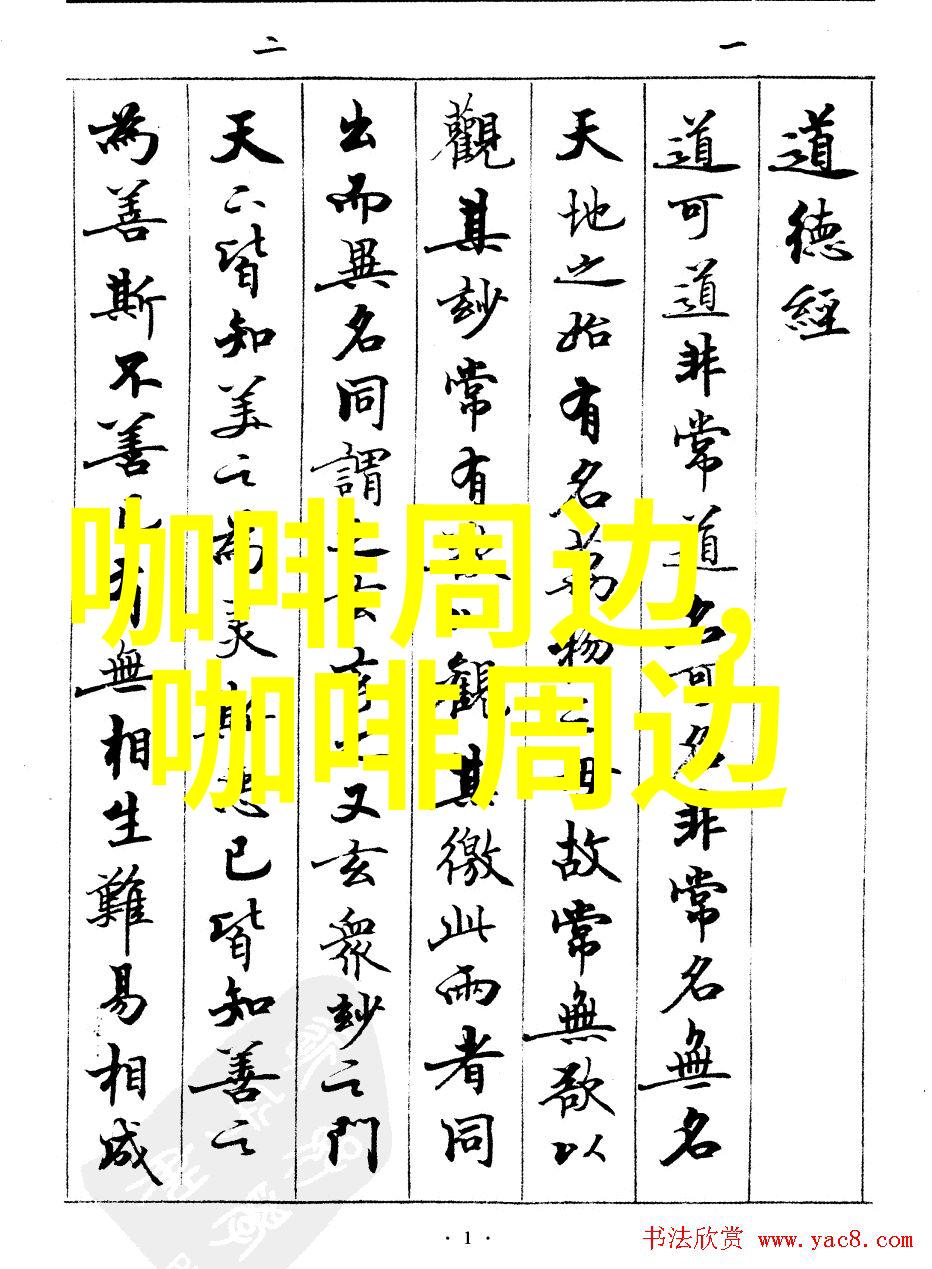 一
二
道德經
道可道非常道名可名非常名無名
天地之始有名萬物之母故常無欲以
觀其玅常有欲以觀其徼此兩者同
出而異名同謂之玄玄之又玄衆玅之門
天下皆知美之為美斯惡已皆知善之
為善斯不善已有無相生難易相成
咖啡周边,
咖啡周边
· 1 ·
书法欣赏 www.yac8.com